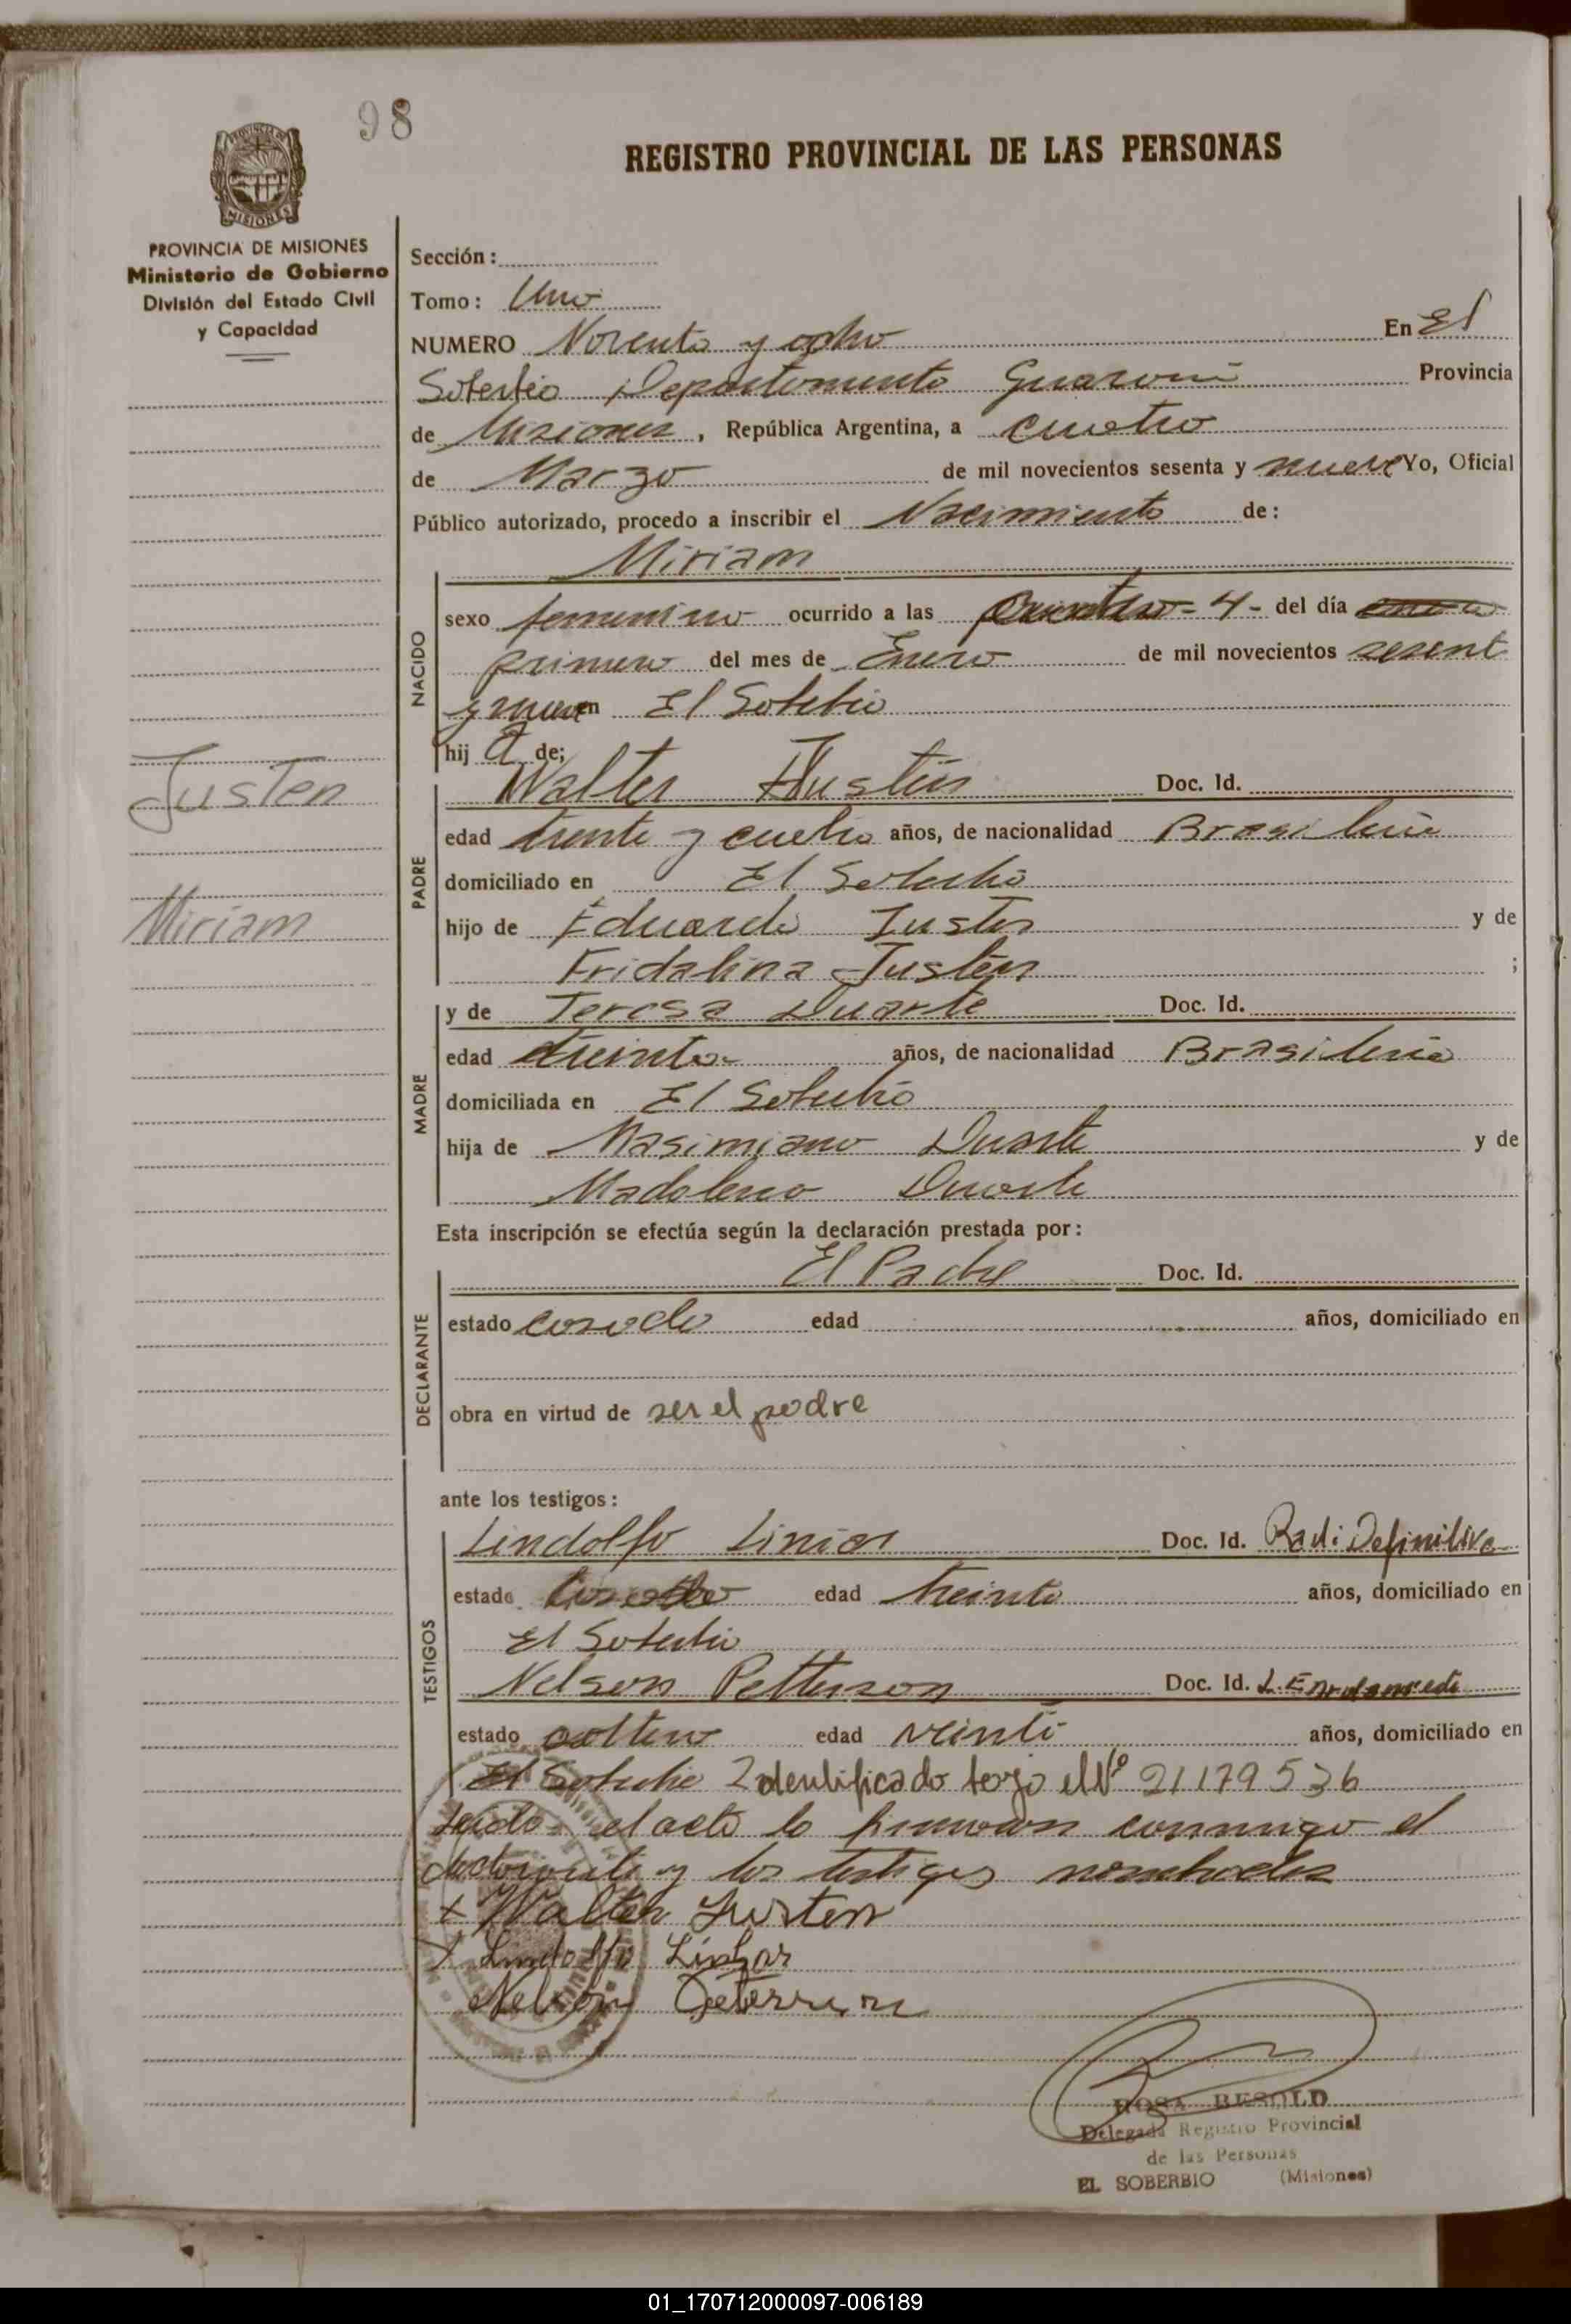 98
REGISTRO PROVINCIAL DE LAS PERSONAS
PROVINCIA DE MISIONES
MISIONES
PROVINCIA DE MISIONES
Ministerio de Gobierno
División del Estado Civil
y Capacidad
Sección:
Tomo: Uno
NUMERO Noventa y ocho En El
Soberbio Departamento Guaraní Provincia
de Misiones, República Argentina, a cuatro
de Marzo de mil novecientos sesenta y nueve Yo, Oficial
Público autorizado, procedo a inscribir el Nacimiento de:
Miriam
NACIDO
sexo femenino ocurrido a las - 4 - del día
primero del mes de Enero de mil novecientos sesent
y nueve en El Soberbio
hij a de;
Justen
Miriam
PADRE
Walter Justen Doc. Id.
edad treinta y cuatro años, de nacionalidad Brasileña
domiciliado en El Soberbio
hijo de Eduardo Justen y de
Fridalina Justen ;
MADRE
y de Teresa Duarte Doc. Id.
edad treinta años, de nacionalidad Brasileña
domiciliada en El Soberbio
hija de Masimiano Duarte y de
Madalena Duarte
Esta inscripción se efectúa según la declaración prestada por:
DECLARANTE
El Padre Doc. Id.
estado casado edad años, domiciliado en
obra en virtud de ser el padre
ante los testigos:
TESTIGOS
Lindolfo Doc. Id. Radi Definitiva
estado edad treinta años, domiciliado en
El Soberbio
Nelson Petterson Doc. Id. L.
estado soltero edad veinti años, domiciliado en
El Soberbio Identificado bajo el Nº 21179526
Leido el acta la firmaron conmigo el
declarante y los testigos nombrados
x Walter Justen
x Lindolfo
Nelson
ROSA BESOLD
Delegada Registro Provincial
de las Personas
EL SOBERBIO (Misiones)
01_170712000097-006189